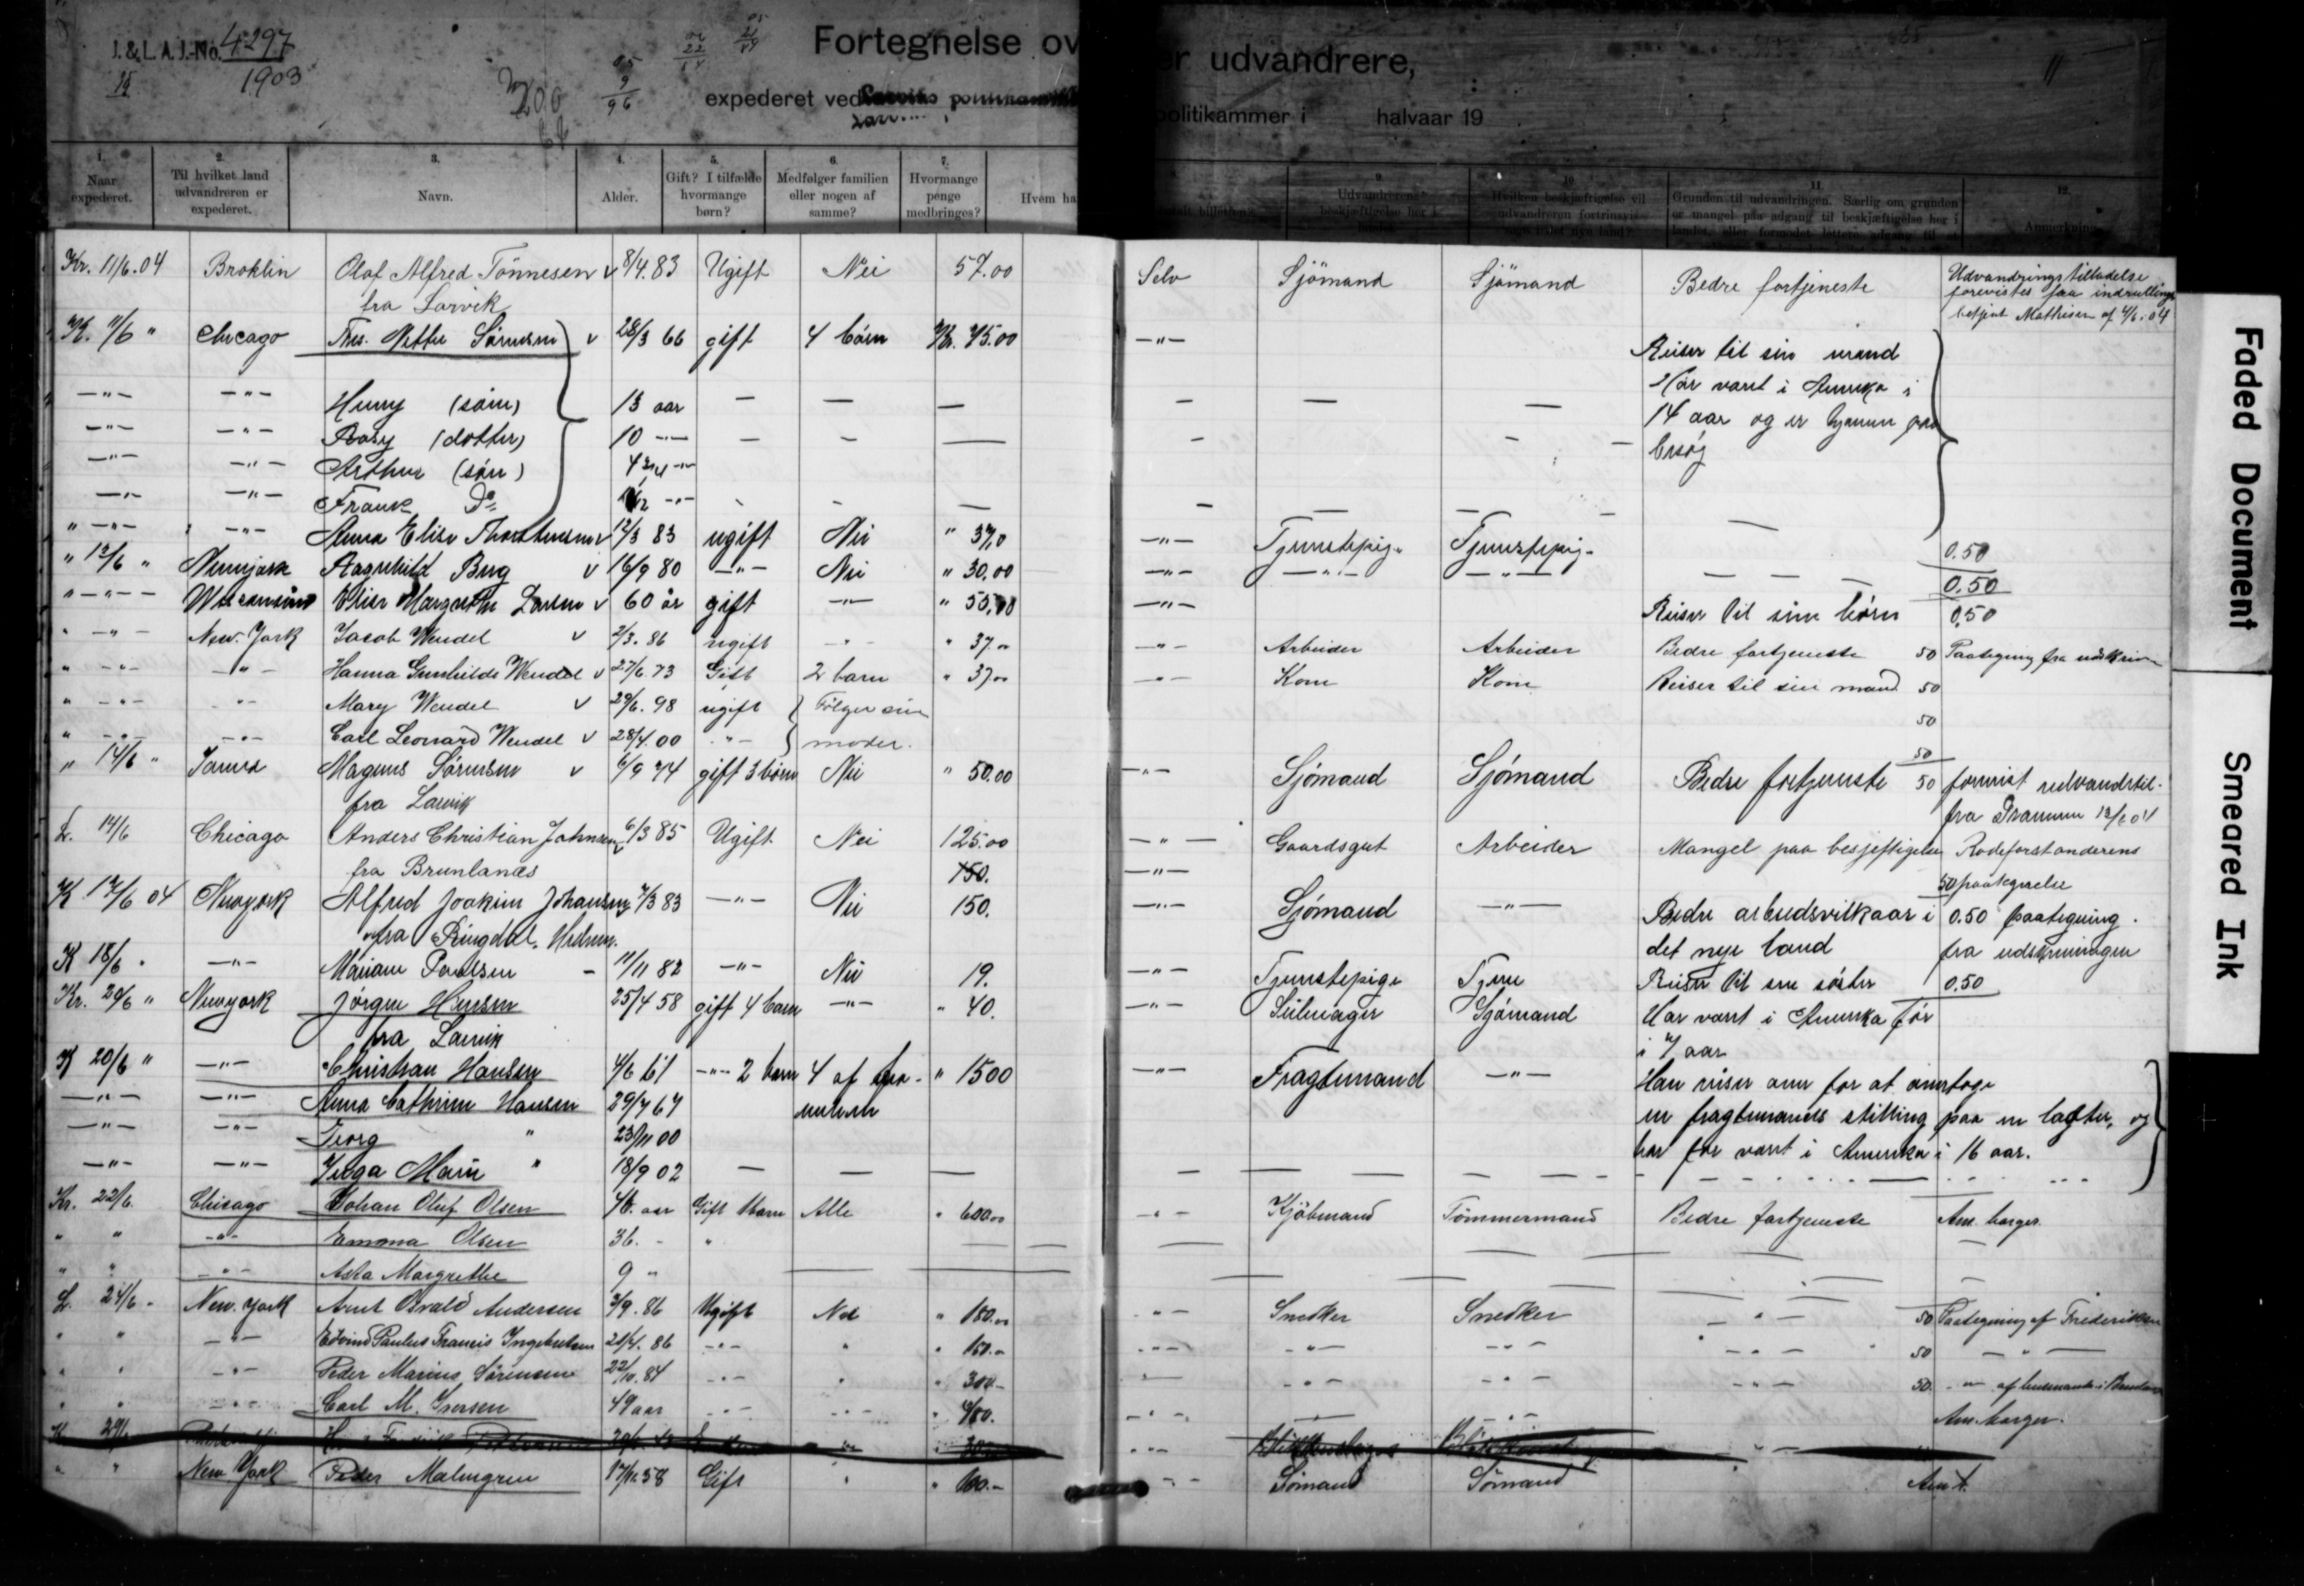 J. & L. A. J.-No. 4297
1903
Fortegnelse over udvandrere,
expederet ved politikammer i halvaar 19
11
1. Naar expederet.
2. Til hvilket land udvandreren er expederet.
3. Navn.
4. Alder.
5. Gift? I tilfælde hvormange børn?
6. Medfølger familien eller nogen af samme?
7. Hvormange penge medbringes?
Hvem ha
betalt billetten?
9. Udvandrerens beskjæftigelse her i landet.
10. Hvilken beskjæftigelse vil udvandreren fortrinsvis søge i det nye land?
11. Grunden til udvandringen. Særlig om grunden er mangel paa adgang til beskjæftigelse her i landet, eller formodet lettere adgang til at
12. Anmerkning.
Kr. 11/6.04 Broklin Olaf Alfred Tönnesen v 8/4.83 Ugift Nei 57.00 Selv Sjömand Sjömand Bedre fortjeneste Udvandringstilladelse
fra Larvik forevistes fra indrullings
betjent Mathisen af 4/6.04
K. 11/6 " Chicago Fres. Nettie Sörensen v 28/3 66 gift 4 börn Kr. 75.00 —"— Reiser til sin mand
Har været i Amerika i
—"— —"— Henry (sön) 13 aar — — — — — — 14 aar og er hjemme paa
—"— —"— Rosy (dotter) 10 —"— — — — — — — besøg
—"— —"— Arthur (sön) 4 3/4 —"—
—"— —"— Frank Do 1/2 —"— - - — — — —
" —"— —"— Anna Elise Thorstensen v 12/3 83 ugift Nei " 37,0 —"— Tjenestepige Tjenestepige — 0.50
" 13/6 " Newyork Ragnhild Berg v 16/9 80 —"— Nei " 30.00 —"— —"— —"— — — — 0.50
" —"— Elise Margrethe Larsen v 60 år gift —"— " 50,00 —"— Reiser til sine börn 0,50
" —"— New-York Jacob Wendel v 2/3.86 ugift —"— " 37.00 —"— Arbeider Arbeider Bedre fortjeneste 50 Paategning fra
" —"— —"— Hanna Gunhilda Wendel v 27/6.73 Gift 2 barn " 37.00 —"— Kone Kone Reiser til sin mand 50
" —"— —"— Mary Wendel v 29/6.98 ugift Fölger sin 50
" —"— —"— Carl Leonard Wendel v 28/4.00 —"— moder. 50
" 14/6 " Magnus Sörensen v 6/9 74 gift 3 börn Nei " 50.00 —"— Sjömand Sjömand Bedre fortjeneste 50
fra Larvik
L. 14/6 Chicago Anders Christian Johnsen 6/3 85 Ugift Nei 125.00 —"— Gaardsgut Arbeider Mangel paa besjeftigelse Rodeforstanderens
fra Brunlanæs 150. —"— 50 paategnelse
K 17/6 04 Newyork Alfred Joakim Johansen 7/3 83 —"— Nei 150. —"— Sjömand —"— Bedre arbeidsvilkaar i 0.50 paategning.
fra det nye land fra udskrivningen
K 18/6 . —"— Mariane Paulsen - 11/11 82 —"— Nei 19. —"— Tjenestepige Tjene Reiser til sin söster 0.50
Kr. 20/6 " Newyork Jörgen Hansen 25/4 58 gift 4 barn —"— " 40. —"— Seilmager Sjömand Har været i Amerika för
fra Larvik i 7 aar
K 20/6 " —"— Christian Hansen 4/6 61 —"— 2 barn 4 af fa- " 1500 —"— Fragtemand —"— Han reiser over for at overtage
—"— —"— Anna Cathrine Hansen 29/7 67 milien en fragtemands stilling paa en lagter, og
—"— —"— Georg " 23/11 00 har før været i Amerika i 16 aar.
—"— —"— Inga Marie " 18/9 02 — — — — — —
Kr. 22/6 Chicago Johan Oluf Olsen 46. aar Gift 1 barn Alle " 600.00 —"— Kjöbmand Tömmermand Bedre fortjeneste Am. borger.
" " —"— Emma Olsen 36. - "
" " —"— Asta Margrethe 9 "
L. 24/6 - New-York Arnt Osvald Andersen 3/9.86 Ugift Nei " 150.00 "— Snedker Snedker —"— 50 Paategning af Frederiksen
" " —"— Edvind Paulus Francis Ingebretsen 21/4.86 —"— " " 150.- —"— —"— —"— —"— 50 —"—
" " —"— Peder Marius Sörensen 22/10.84 —"— " " 300.- —"— —"— —"— —"— 50.
" " —"— Carl M. Iversen 49 aar —"— —"— —"— —"— Am. borger.
K 29/6
" " New York Peder Malmgren 17/11.58 Gift " " 100.- —"— Sömand Sömand Am
Faded Document
Smeared Ink